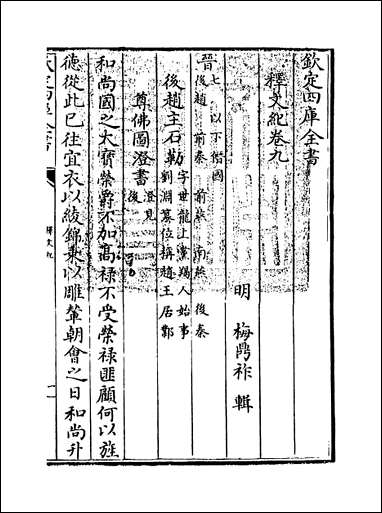 欽定四庫全書
釋文紀卷九
明 梅鼎祚 輯
晉七 以下僭國
後趙 前秦 前燕 南燕 後秦
後趙主石勒 字世龍上黨羯人始事
劉淵篡位稱趙王居鄴
尊佛圖澄書 澄見
後
和尚國之大寶榮爵不加高祿不受榮祿匪顧何以旌
德從此已往宜衣以綾錦乘以雕輦朝會之日和尚升